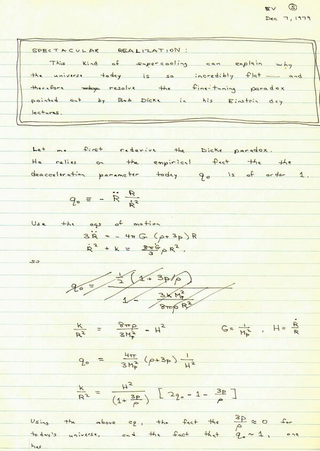 EV ⑧
Dec 7, 1979
SPECTACULAR REALIZATION:
This kind of supercooling can explain why
the universe today is so incredibly flat — and
therefore resolve the fine-tuning paradox
pointed out by Bob Dicke in his Einstein day
lectures.
Let me first rederive the Dicke paradox.
He relies on the empirical fact the the
deacceleration parameter today q₀ is of order 1.
q₀ ≡ - R̈ R/Ṙ²
Use the eqs of motion
3R̈ = - 4π G (ρ+3p) R
Ṙ² + k = 8πG/3 ρR².
so
q₀ = ½ (1 + 3p/ρ) / 1 - 3kMₚ²/8πρR²
k/R² = 8πρ/3Mₚ² - H²   G = 1/Mₚ² , H = Ṙ/R
q₀ = 4π/3Mₚ² (ρ+3p) 1/H²
k/R² = H²/(1+3p/ρ) [ 2q₀ - 1 - 3p/ρ ]
Using the above eq, the fact the 3p/ρ ≈ 0 for
today's universe, and the fact that q₀ ~ 1, one
has